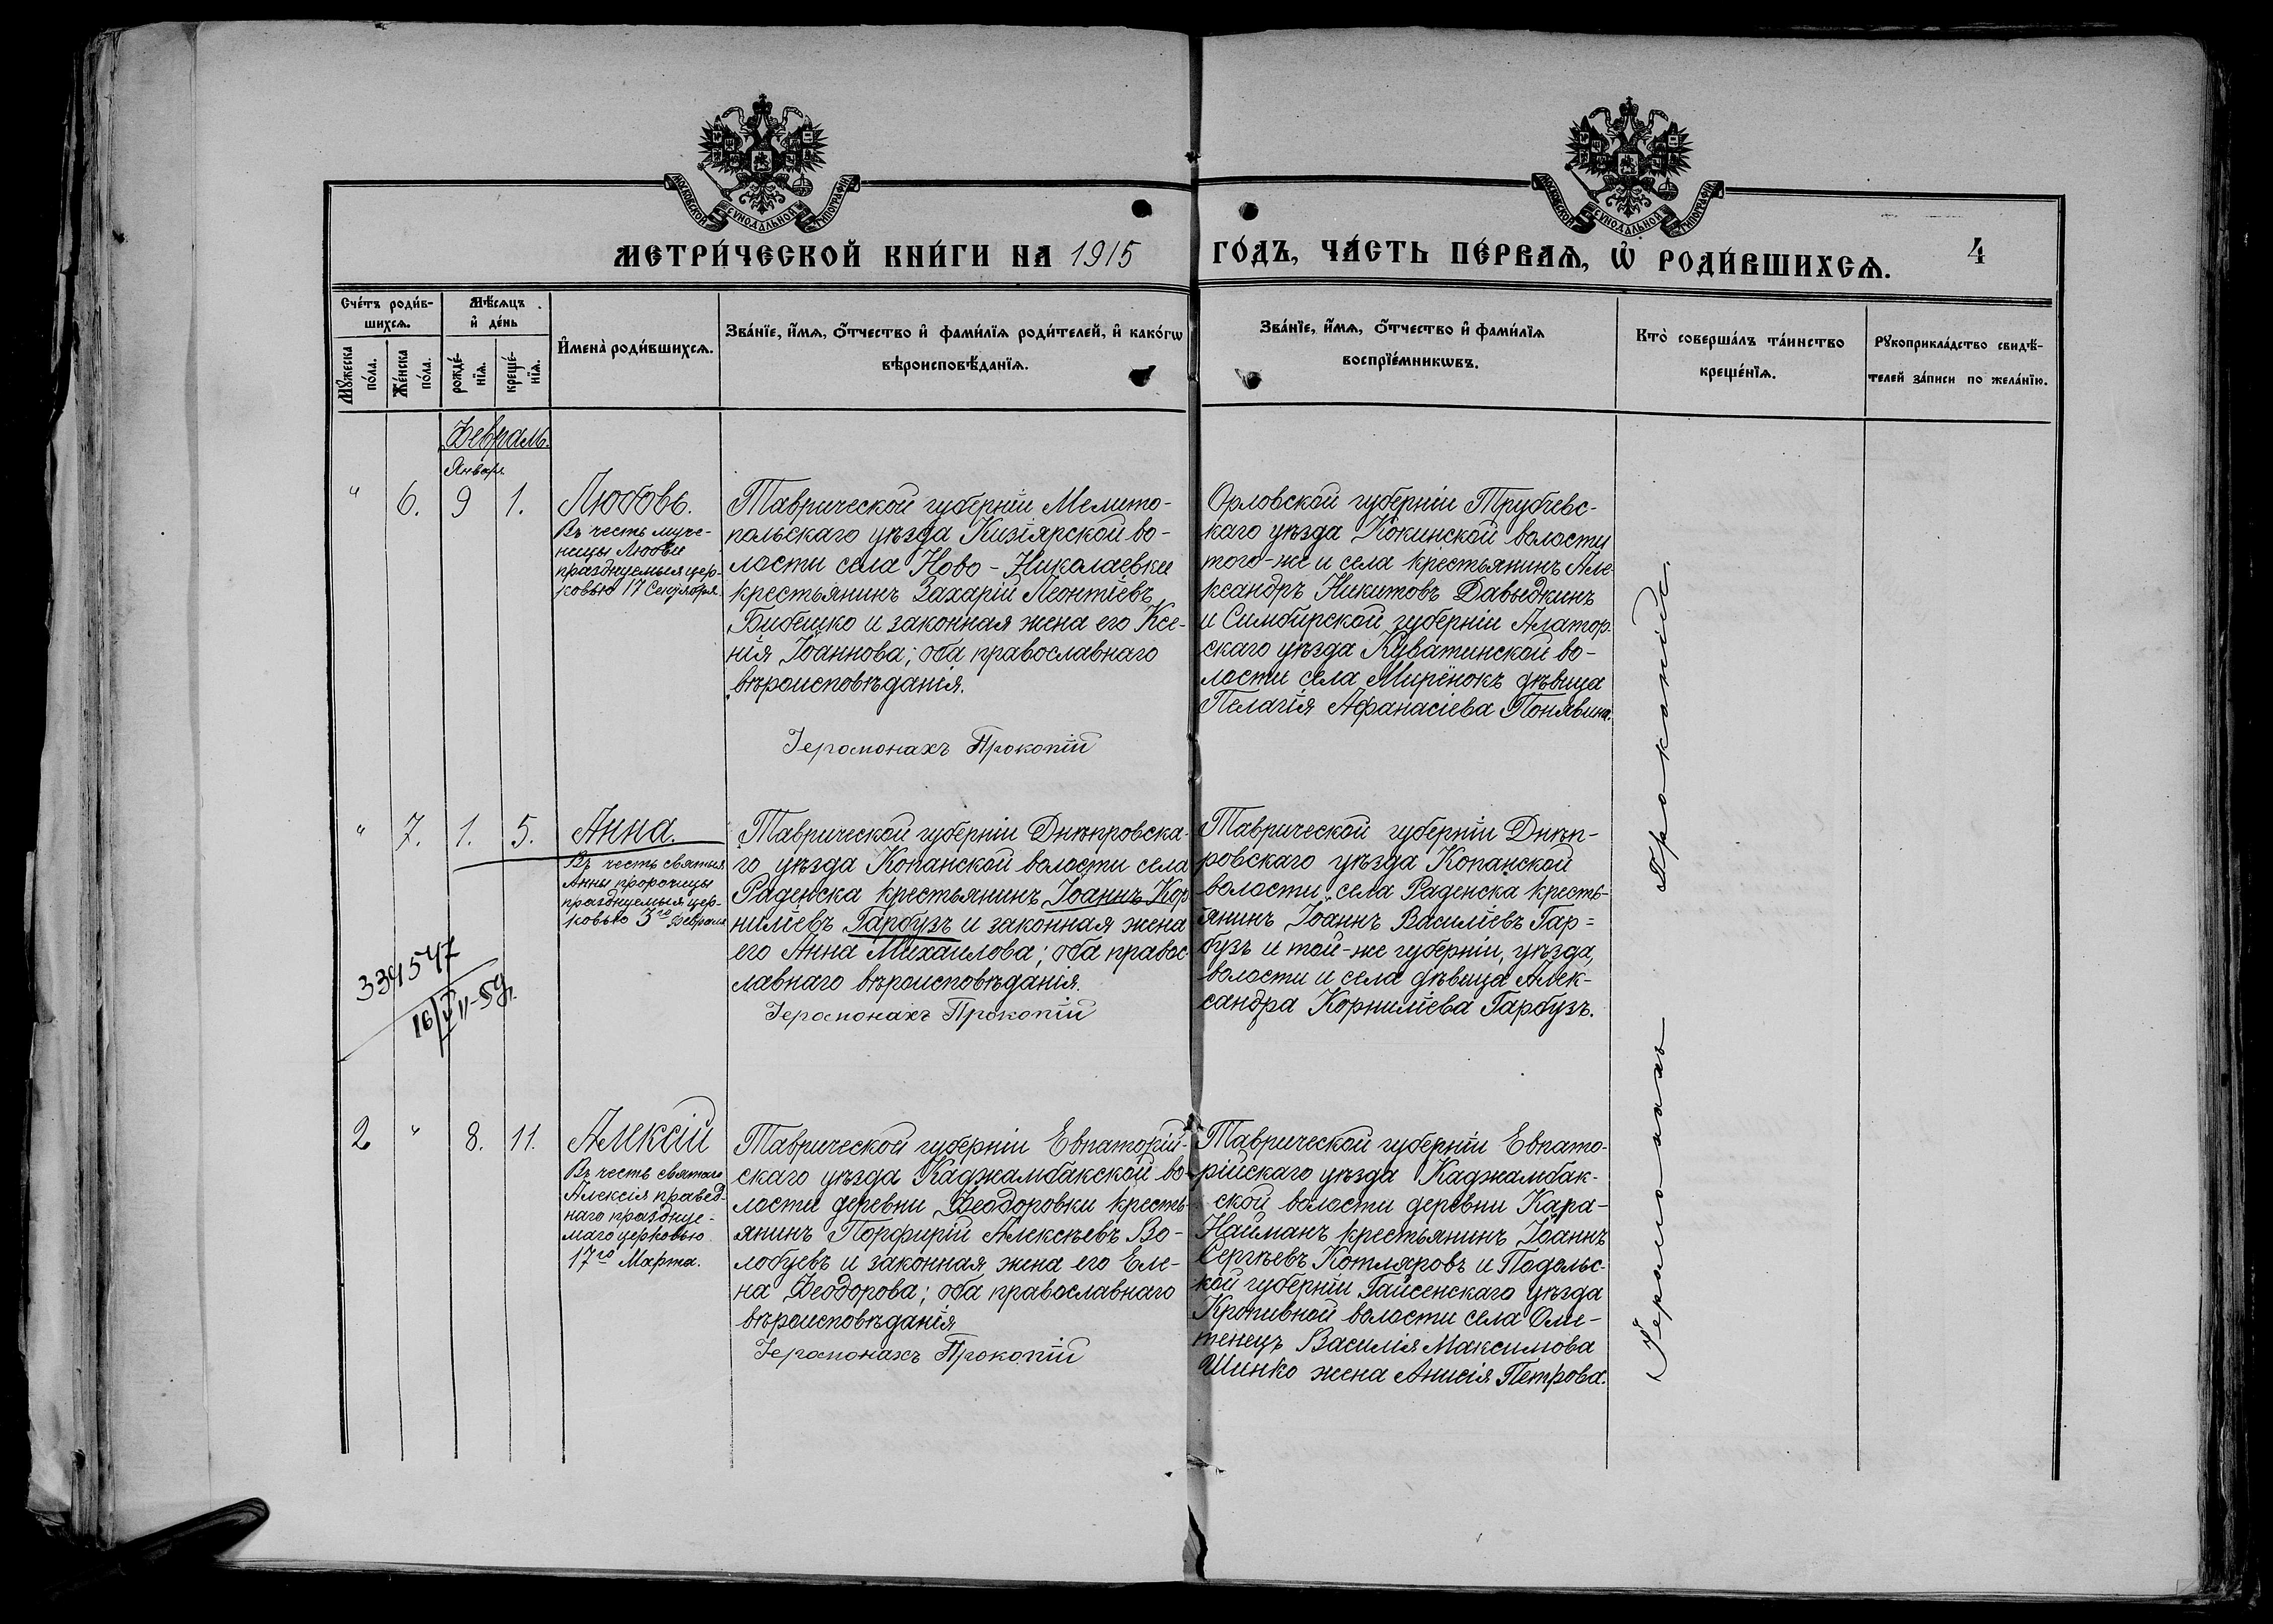 МОСКОВСКОЙ СУНОДАЛЬНОЙ ТИПОГРАФІИ
МОСКОВСКОЙ СУНОДАЛЬНОЙ ТИПОГРАФІИ
МЕТРИ́ЧЕСКОЙ КНИ́ГИ НА 1915
ГО́ДЪ, ЧА́СТЬ ПЕ́РВАѦ, Ѡ҆ РОДИ́ВШИХСѦ.
4
Сче́тъ роди́в-
шихсѧ.
Мѣ́сѧцъ
и҆ де́нь
Мꙋ́жеска
по́ла.
Же́нска
по́ла.
рожде́-
нїѧ.
креще́-
нїѧ.
И҆мена̀ роди́вшихсѧ.
Зва́нїе, и҆́мѧ, ѻ҆́тчество и҆ фами́лїѧ роди́телей, и҆ како́гѡ
вѣроисповѣ́данїѧ.
Зва́нїе, и҆́мѧ, ѻ҆́тчество и҆ фами́лїѧ
воспрїе́мникѡвъ.
Кто̀ соверша́лъ та́инство
креще́нїѧ.
Рꙋкоприкла́дство свидѣ́-
телей за́писи по жела́нїю.
Февраль.
Январ.
" 6. 9 1. Любовь.
Въ честь муче-
ницы Любви
празднуемыя цер-
ковью 17 Сентября.
Таврической губерніи Мелито-
польскаго уѣзда Кизіярской во-
лости села Ново-Николаевки
крестьянинъ Захарій Леонтіевъ
Бибешко и законная жена его Ксе-
нія Іоаннова; оба православнаго
вѣроисповѣданія.
Іеромонахъ Прокопій
Орловской губерніи Трубчевс-
каго уѣзда Кокинской волости
того-же и села крестьянинъ Але-
ксандръ Никитовъ Давыдкинъ
и Симбирской губерніи Алатор-
скаго уѣзда Куватинской во-
лости села Миренокъ дѣвица
Пелагія Афанасіева Понявина.
" 7. 1. 5. Анна.
Въ честь святыя
Анны пророчицы
празднуемыя цер-
ковью 3го Февраля
334547
16/VII-59г.
Таврической губерніи Днѣпровска-
го уѣзда Копанской волости села
Раденска крестьянинъ Іоаннъ Кор
ниліевъ Гарбузъ и законная жена
его Анна Михаилова; оба правос
лавнаго вѣроисповѣданія.
Іеромонахъ Прокопій
Таврической губерніи Днѣп-
ровскаго уѣзда Копанской
волости села Раденска кресть-
янинъ Іоаннъ Василіевъ Гар=
бузъ и той-же губерніи, уѣзда,
волости и села дѣвица Алек-
сандра Корниліева Гарбузъ.
2 " 8. 11. Алексій
Въ честь святаго
Алексія правед-
наго празднуе-
маго церковью
17го Марта.
Таврической губерніи Евпаторій-
скаго уѣзда Каджамбакской во-
лости деревни Феодоровки кресть-
янинъ Порфирій Алексѣевъ Во-
лобуевъ и законная жена его Еле-
на Феодорова; оба православнаго
вѣроисповѣданія
Іеромонахъ Прокопій
Таврической губерніи Евпато-
рійскаго уѣзда Каджамбак-
ской волости деревни Кара-
Найманъ крестьянинъ Іоаннъ
Сергѣевъ Котляровъ и Подольс-
кой губерніи Гайсенскаго уѣзда
Кропивной волости села Оли-
тенецъ Василія Максимова
Шинко жена Анисія Петрова.
Іеромонахъ Прокопій.